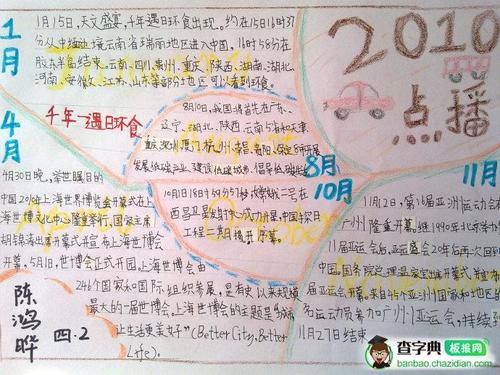 1月
1月15日,天文盛宴,千年遇日环食出现。约在15日16时37
分从中缅边境云南省瑞丽地区进入中国,16时58分在
胶东半岛结束。云南、四川、贵州、重庆、陕西、湖南、湖北、
河南、安徽、江苏、山东等部分地区可以看到环食。
千年一遇日环食
2010
点播
4月
4月30日晚,举世瞩目的
中国2010年上海世界博览会开幕式在上
海世博文化中心隆重举行,国家主席
胡锦涛出席开幕式并宣布上海世博会
开幕,5月1日,世博会正式开园。上海世博会由
246个国家和国际组织参展,是有史以来规模
最大的一届世博会,上海世博会的主题是“城市
让生活更美好”(Better City, Better
Life)。
8月
8月10日,我国将首先在广东、
辽宁、湖北、陕西、云南5省和天津、
重庆、深圳、厦门、杭州、南昌、贵阳、保定8市开展
发展低碳产业、建设低碳城市、倡导低碳生活
10月
10月1日18时59分57秒嫦娥二号在
西昌卫星发射中心成功升空,中国探月
工程二期揭开序幕。
11月
11月12日,第16届亚洲运动会在
广州隆重开幕,继1990年北京举办
11届亚运会后,亚运盛会20年后再次回到
中国。国务院总理温家宝出席开幕式并宣布
届亚运会开幕。来自45个亚洲国家和地区的
名运动员参加广州亚运会,持续到
11月27日结束
陈鸿晔
四.2
查字典 板报网
banbao.chazidian.com